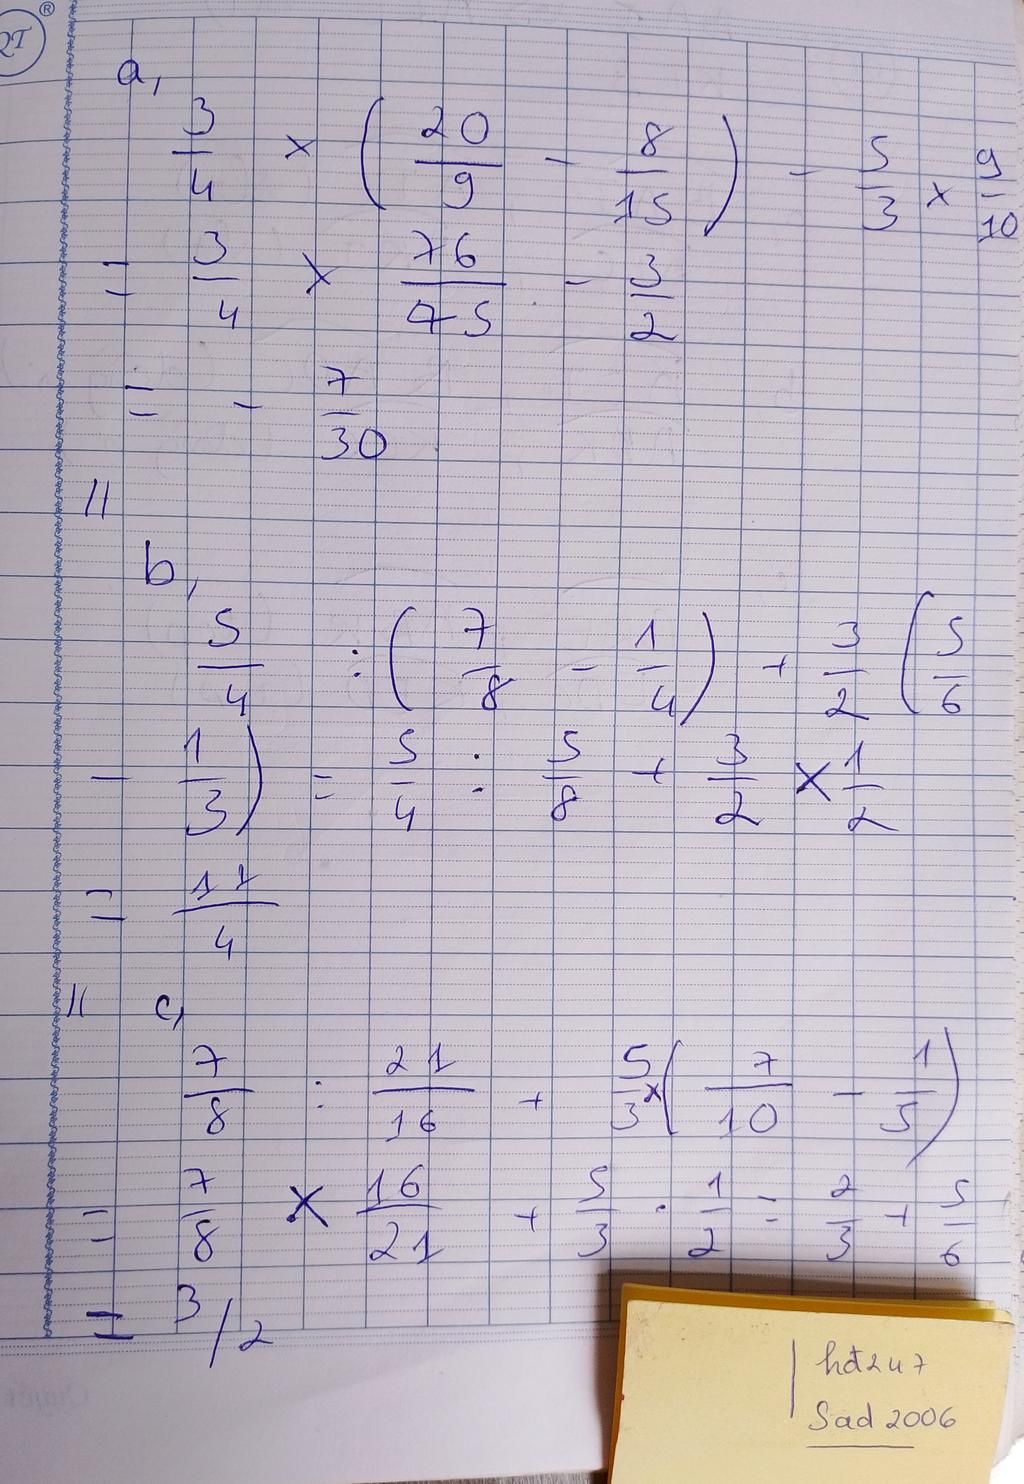 RT ®
a,
3/4 × (20/9 - 8/15) - 5/3 × 9/10
= 3/4 × 76/45 - 3/2
= - 7/30
//
b,
5/4 : (7/8 - 1/4) + 3/2 (5/6
- 1/3) = 5/4 : 5/8 + 3/2 × 1/2
= 11/4
// c,
7/8 : 21/16 + 5/3 × (7/10 - 1/5)
= 7/8 × 16/21 + 5/3 . 1/2 = 2/3 + 5/6
= 3/2
| hđ247
Sad 2006